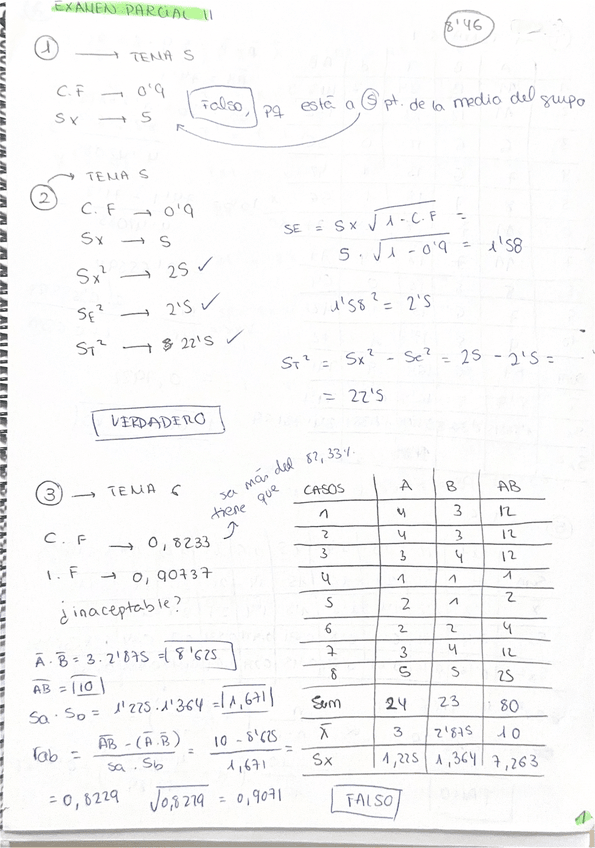 EXAMEN PARCIAL 11
8'46
1 → TEMA 5
C.F → 0'9
Sx → 5
Falso, pq está a 5 pt. de la media del grupo
2 → TEMA 5
C.F → 0'9
Sx → 5
Sx² → 25 ✓
SE² → 2'5 ✓
ST² → 22'5 ✓
SE = Sx √1 - C.F =
5 · √1 - 0'9 = 1'58
1'58² = 2'5
ST² = Sx² - Se² = 25 - 2'5 =
= 22'5
VERDADERO
3 → TEMA 6
tiene que
sa más del 82,33%
C.F → 0,8233
I.F → 0,90737
¿inaceptable?
A̅·B̅ = 3·2'875 = 8'625
A̅B̅ = 10
Sa·Sb = 1'225·1'364 = 1,671
rab = A̅B̅ - (A̅·B̅) / Sa·Sb = 10 - 8'625 / 1,671 =
= 0,8229 √0,8229 = 0,9071
CASOS A B AB
1 4 3 12
2 4 3 12
3 3 4 12
4 1 1 1
5 2 1 2
6 2 2 4
7 3 4 12
8 5 5 25
Sum 24 23 80
X̅ 3 2'875 10
Sx 1,225 1,364 7,263
FALSO
1